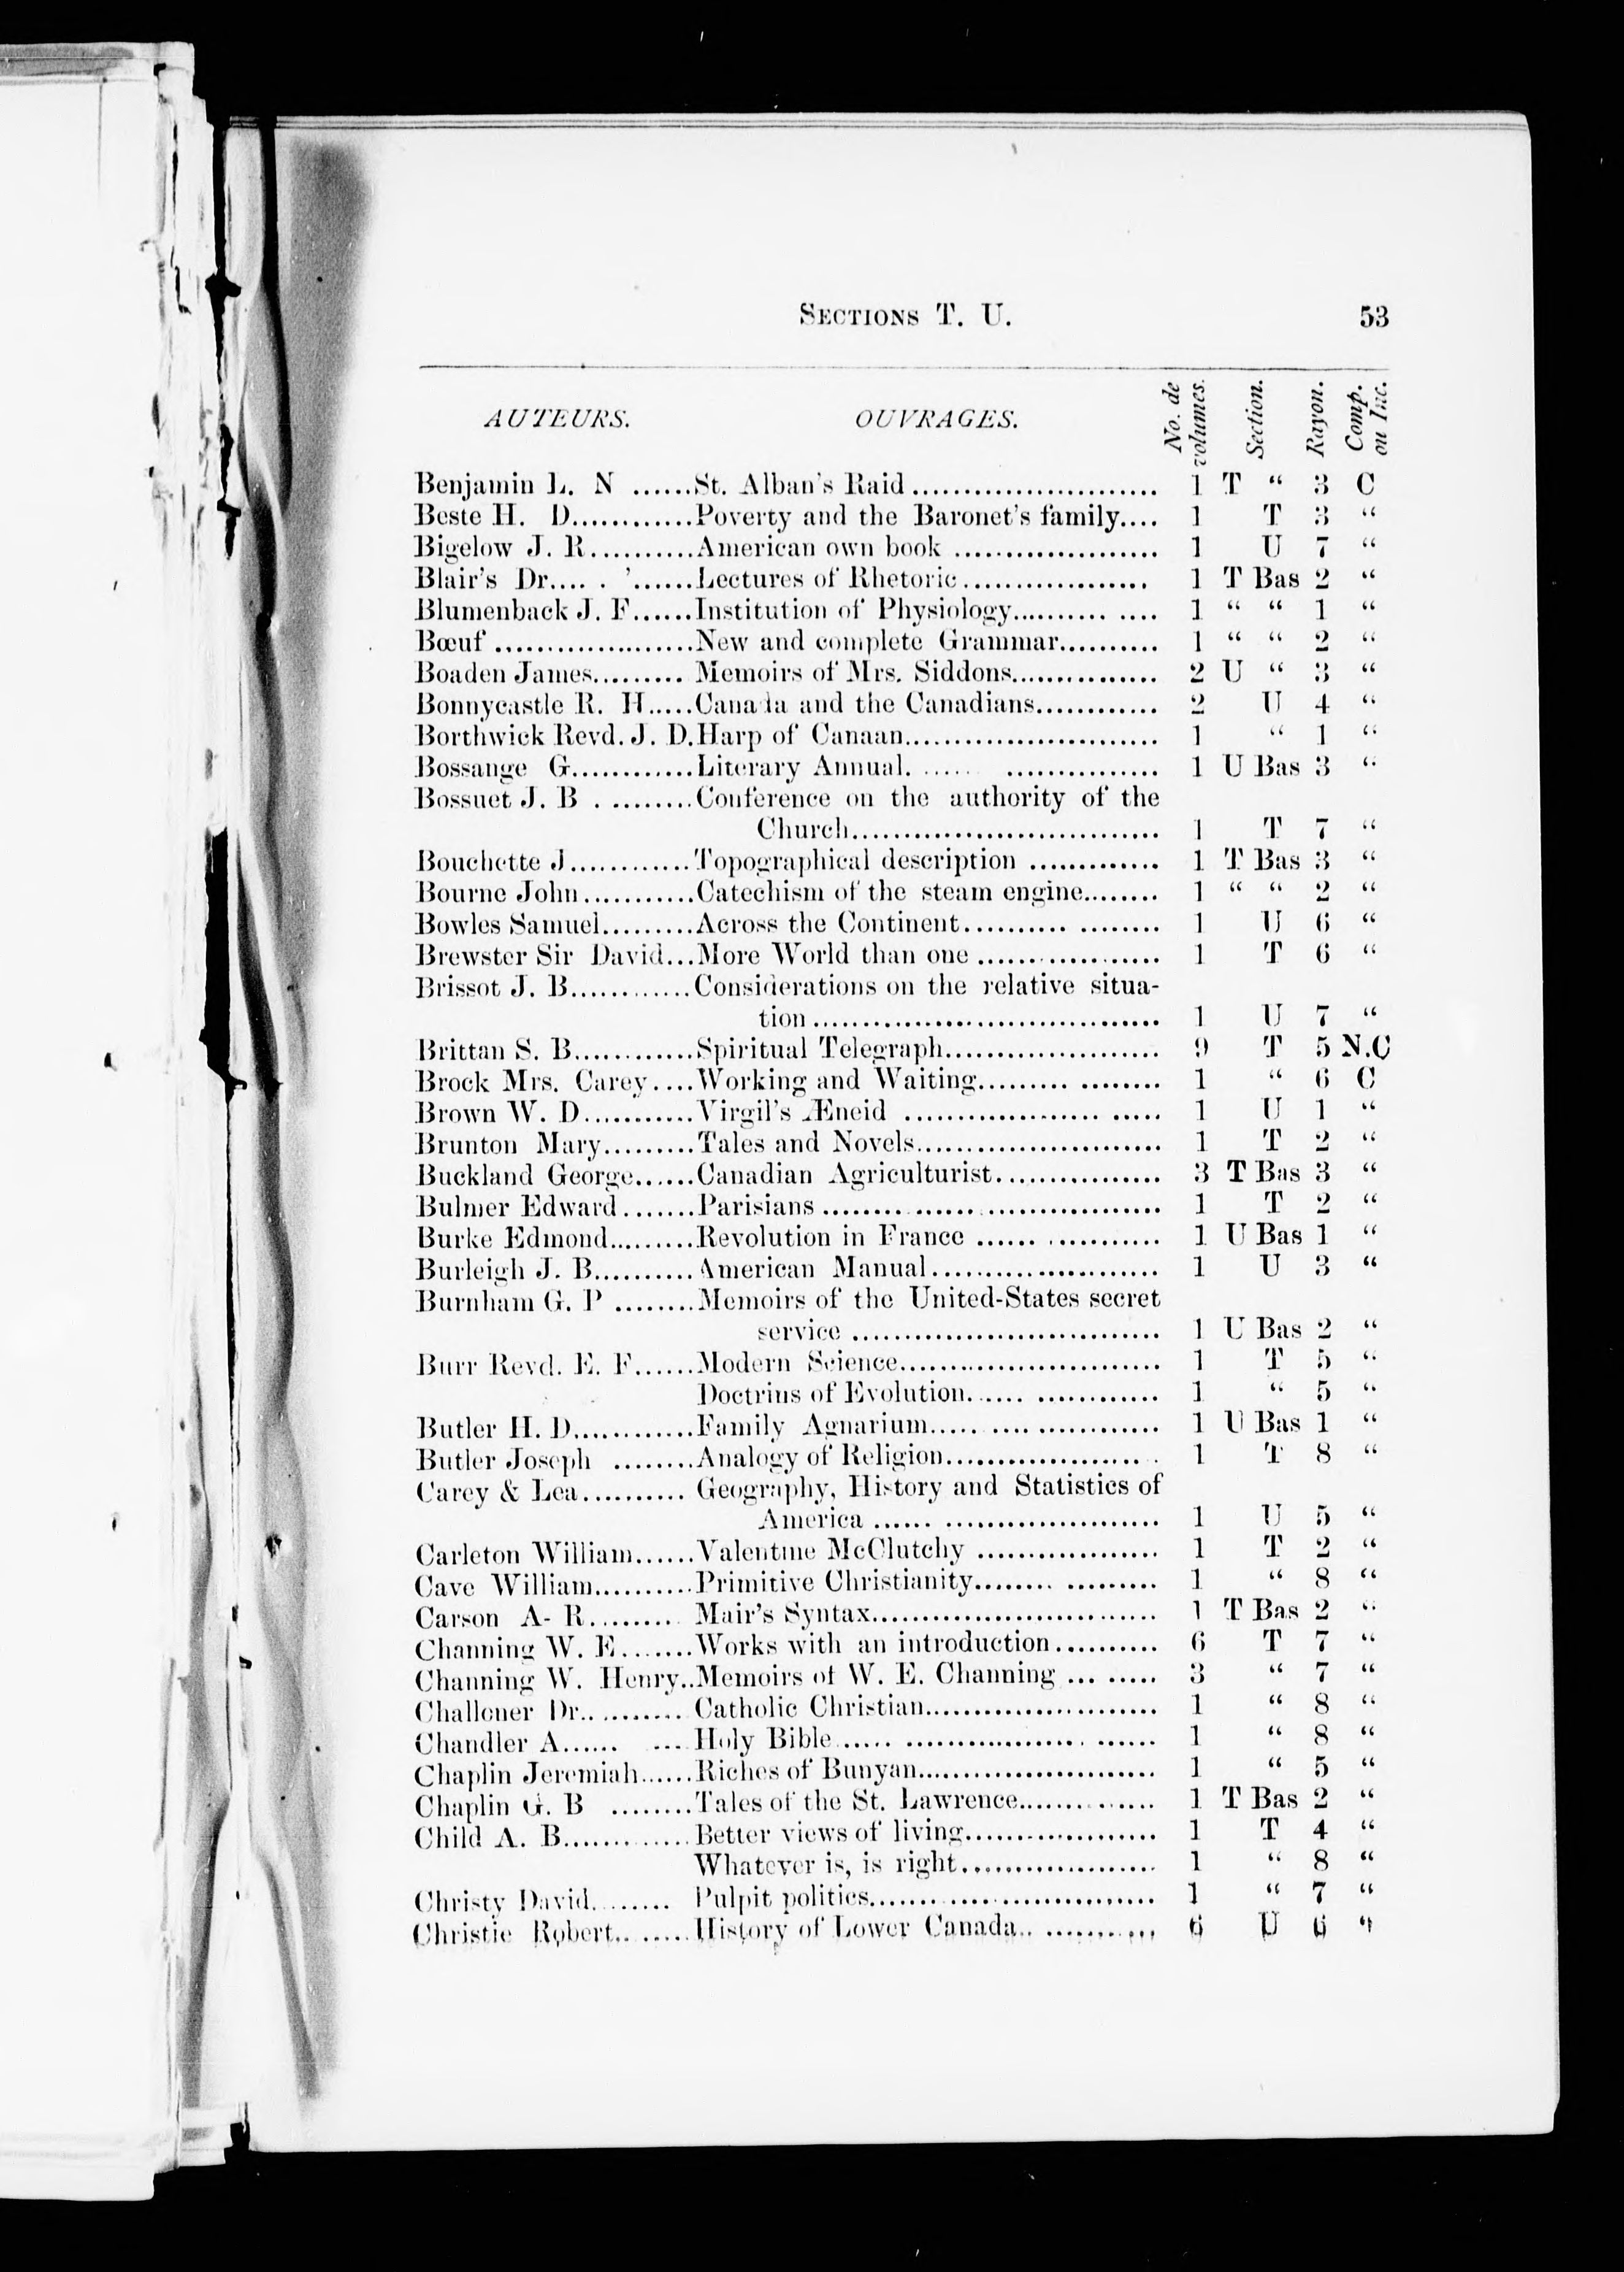 SECTIONS T. U. 53
AUTEURS. OUVRAGES. No. de volumes. Section. Rayon. Comp. ou Inc.
Benjamin L. N ......St. Alban's Raid ........................ 1 T “ 3 C
Beste H. D............Poverty and the Baronet's family.... 1 T 3 “
Bigelow J. R..........American own book .................... 1 U 7 “
Blair's Dr.... . '......Lectures of Rhetoric.................. 1 T Bas 2 “
Blumenback J. F......Institution of Physiology........... .... 1 “ “ 1 “
Bœuf ....................New and complete Grammar.......... 1 “ “ 2 “
Boaden James......... Memoirs of Mrs. Siddons............... 2 U “ 3 “
Bonnycastle R. H.....Canada and the Canadians............ 2 U 4 “
Borthwick Revd. J. D.Harp of Canaan......................... 1 “ 1 “
Bossange G............Literary Annual. ...... ............... 1 U Bas 3 “
Bossuet J. B . ........Conference on the authority of the
Church.............................. 1 T 7 “
Bouchette J............Topographical description ............. 1 T Bas 3 “
Bourne John...........Catechism of the steam engine........ 1 “ “ 2 “
Bowles Samuel.........Across the Continent.......... ........ 1 U 6 “
Brewster Sir David...More World than one .................. 1 T 6 “
Brissot J. B............Considerations on the relative situa-
tion .................................. 1 U 7 “
Brittan S. B............Spiritual Telegraph..................... 9 T 5 N.C
Brock Mrs. Carey....Working and Waiting......... ........ 1 “ 6 C
Brown W. D...........Virgil's Æneid ................... ..... 1 U 1 “
Brunton Mary.........Tales and Novels........................ 1 T 2 “
Buckland George......Canadian Agriculturist................ 3 T Bas 3 “
Bulmer Edward.......Parisians ................................. 1 T 2 “
Burke Edmond.........Revolution in France ...... ........... 1 U Bas 1 “
Burleigh J. B..........American Manual...................... 1 U 3 “
Burnham G. P ........Memoirs of the United-States secret
service .............................. 1 U Bas 2 “
Burr Revd. E. F......Modern Science......................... 1 T 5 “
Doctrins of Evolution...... ............ 1 “ 5 “
Butler H. D............Family Agnarium..... .... ............ 1 U Bas 1 “
Butler Joseph ........Analogy of Religion.................... . 1 T 8 “
Carey & Lea........... Geography, History and Statistics of
America ...... ..................... 1 U 5 “
Carleton William......Valentine McClutchy .................. 1 T 2 “
Cave William..........Primitive Christianity........ ......... 1 “ 8 “
Carson A- R......... Mair's Syntax............................ 1 T Bas 2 “
Channing W. E.......Works with an introduction.......... 6 T 7 “
Channing W. Henry..Memoirs of W. E. Channing ... ..... 3 “ 7 “
Challoner Dr.. ........ Catholic Christian....................... 1 “ 8 “
Chandler A...... ....Holy Bible...... .................. ...... 1 “ 8 “
Chaplin Jeremiah......Riches of Bunyan........................ 1 “ 5 “
Chaplin G. B ........Tales of the St. Lawrence............. 1 T Bas 2 “
Child A. B............Better views of living................... 1 T 4 “
Whatever is, is right................... 1 “ 8 “
Christy David........ Pulpit politics............................ 1 “ 7 “
Christie Robert.. ......History of Lower Canada.. ........... 6 U 6 “